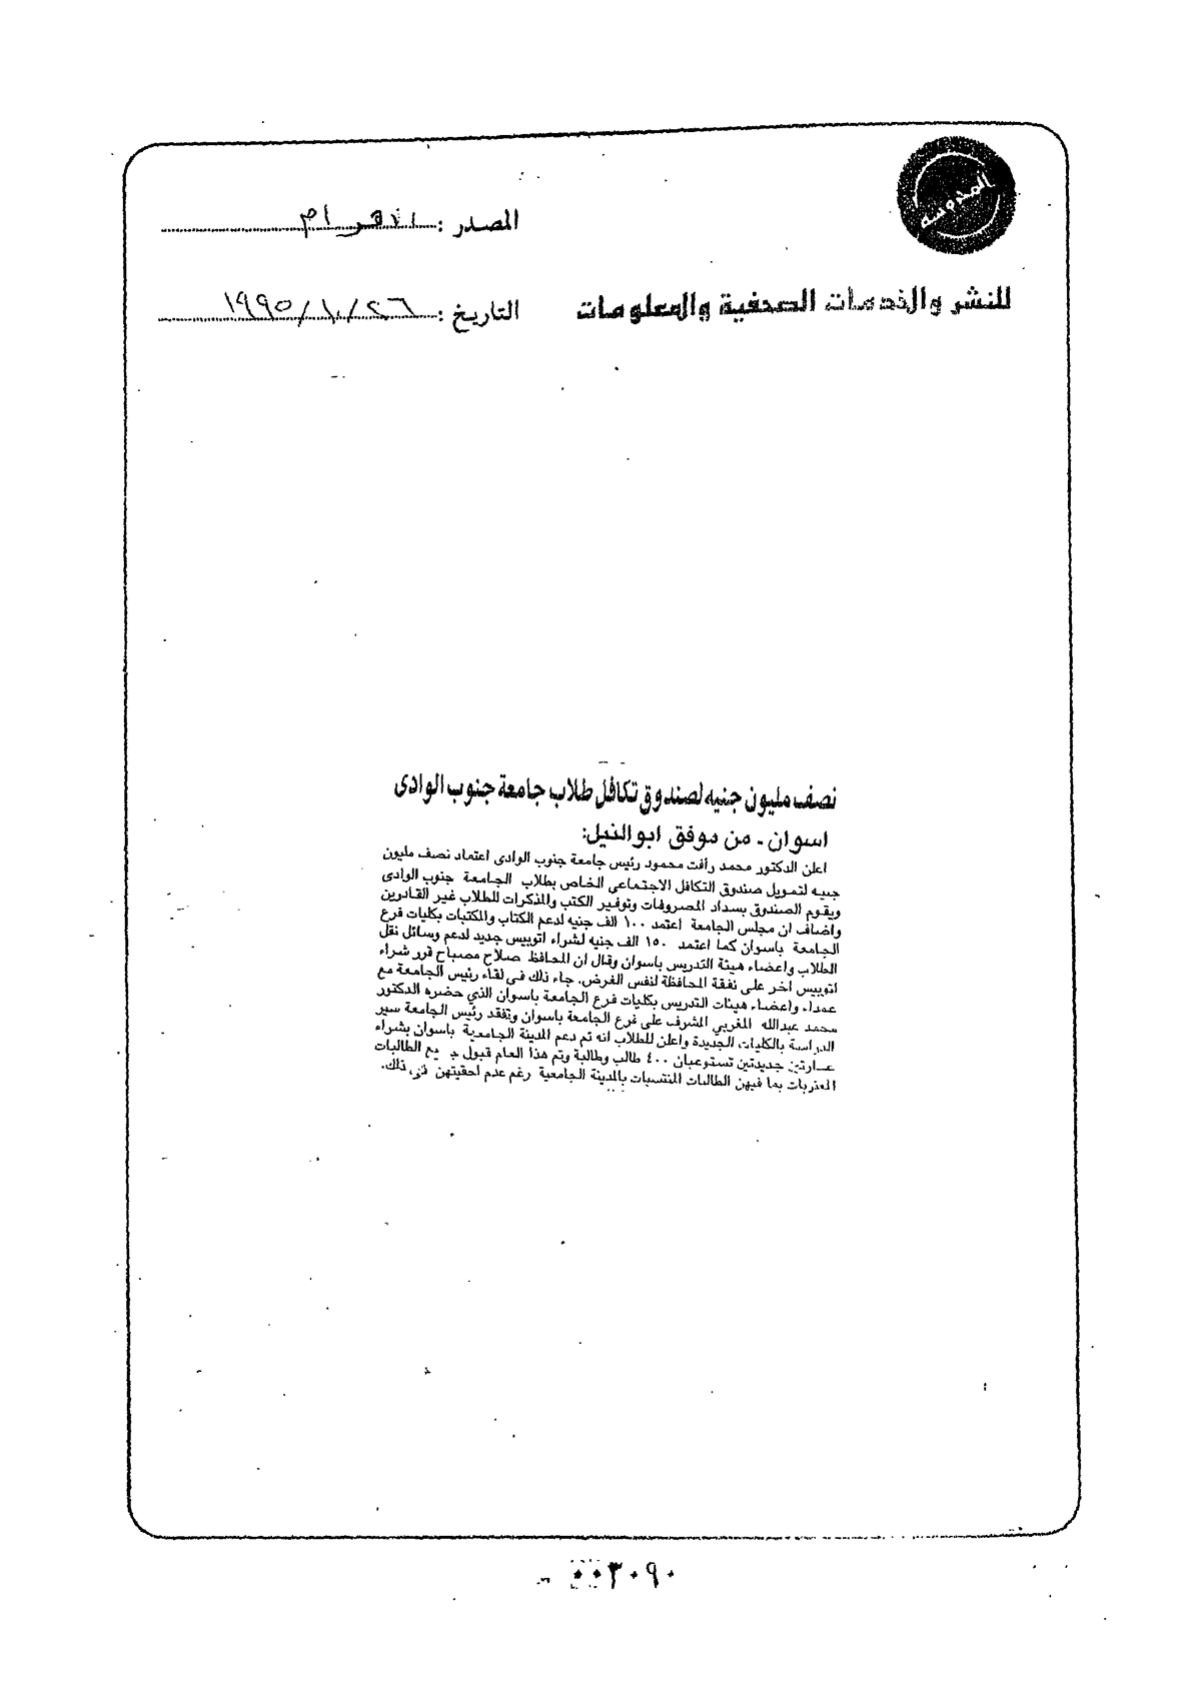 المدوسة
المصدر : الاهرام
للنشر والخدمات الصحفية والمعلومات
التاريخ : ٢٦ / ١٠ / ١٩٩٥
نصف مليون جنيه لصندوق تكافل طلاب جامعة جنوب الوادى
اسوان ـ من موفق ابو النيل:
اعلن الدكتور محمد رأفت محمود رئيس جامعة جنوب الوادى اعتماد نصف مليون
جنيه لتمويل صندوق التكافل الاجتماعى الخاص بطلاب الجامعة جنوب الوادى
ويقوم الصندوق بسداد المصروفات وتوفير الكتب والمذكرات للطلاب غير القادرين
واضاف ان مجلس الجامعة اعتمد ١٠٠ الف جنيه لدعم الكتاب والمكتبات بكليات فرع
الجامعة باسوان كما اعتمد ١٥٠ الف جنيه لشراء اتوبيس جديد لدعم وسائل نقل
الطلاب واعضاء هيئة التدريس باسوان وقال ان المحافظ صلاح مصباح قرر شراء
اتوبيس اخر على نفقة المحافظة لنفس الغرض. جاء ذلك فى لقاء رئيس الجامعة مع
عمداء واعضاء هيئات التدريس بكليات فرع الجامعة باسوان الذي حضره الدكتور
محمد عبدالله المغربي المشرف على فرع الجامعة باسوان وتفقد رئيس الجامعة سير
الدراسة بالكليات الجديدة واعلن للطلاب انه تم دعم المدينة الجامعية باسوان بشراء
عمارتين جديدتين تستوعبان ٤٠٠ طالب وطالبة وتم هذا العام قبول جميع الطالبات
المغتربات بما فيهن الطالبات المنتسبات بالمدينة الجامعية رغم عدم احقيتهن فى ذلك.
٠٠٣٠٩٠